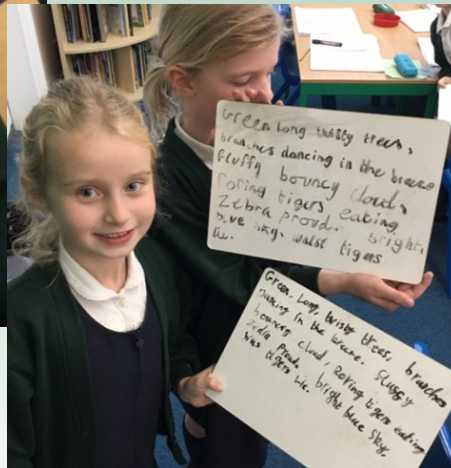 Green Long twisty trees,
branches dancing in the breeze
Fluffy bouncy cloud,
roring tigers eating
Zebra proud. bright,
blue sky, whilst tigers
lie.
Green, Long, twisty trees, branches
Dancing in the breeze. Fluffy
bouncy cloud, roring tigers eating
Zebra proud. bright blue sky,
tigers lie.